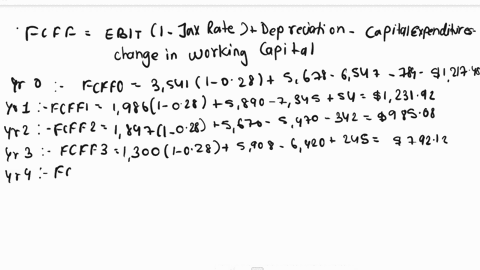 FCFF = EBIT (1 - Tax Rate) + Depreciation - Capital Expenditures - change in Working Capital
Yr 0 :- FCFF0 = 3,541 (1-0.28) + 5,678 - 6,547 - 784 = $1,217.48
Yr 1 :- FCFF1 = 1,986 (1-0.28) + 5,890 - 7,345 + 54 = $1,231.92
Yr 2 :- FCFF2 = 1,847 (1-0.28) + 5,670 - 5,470 - 342 = $985.08
Yr 3 :- FCFF3 = 1,300 (1-0.28) + 5,908 - 6,420 + 245 = $792.12
Yr 4 :- FC